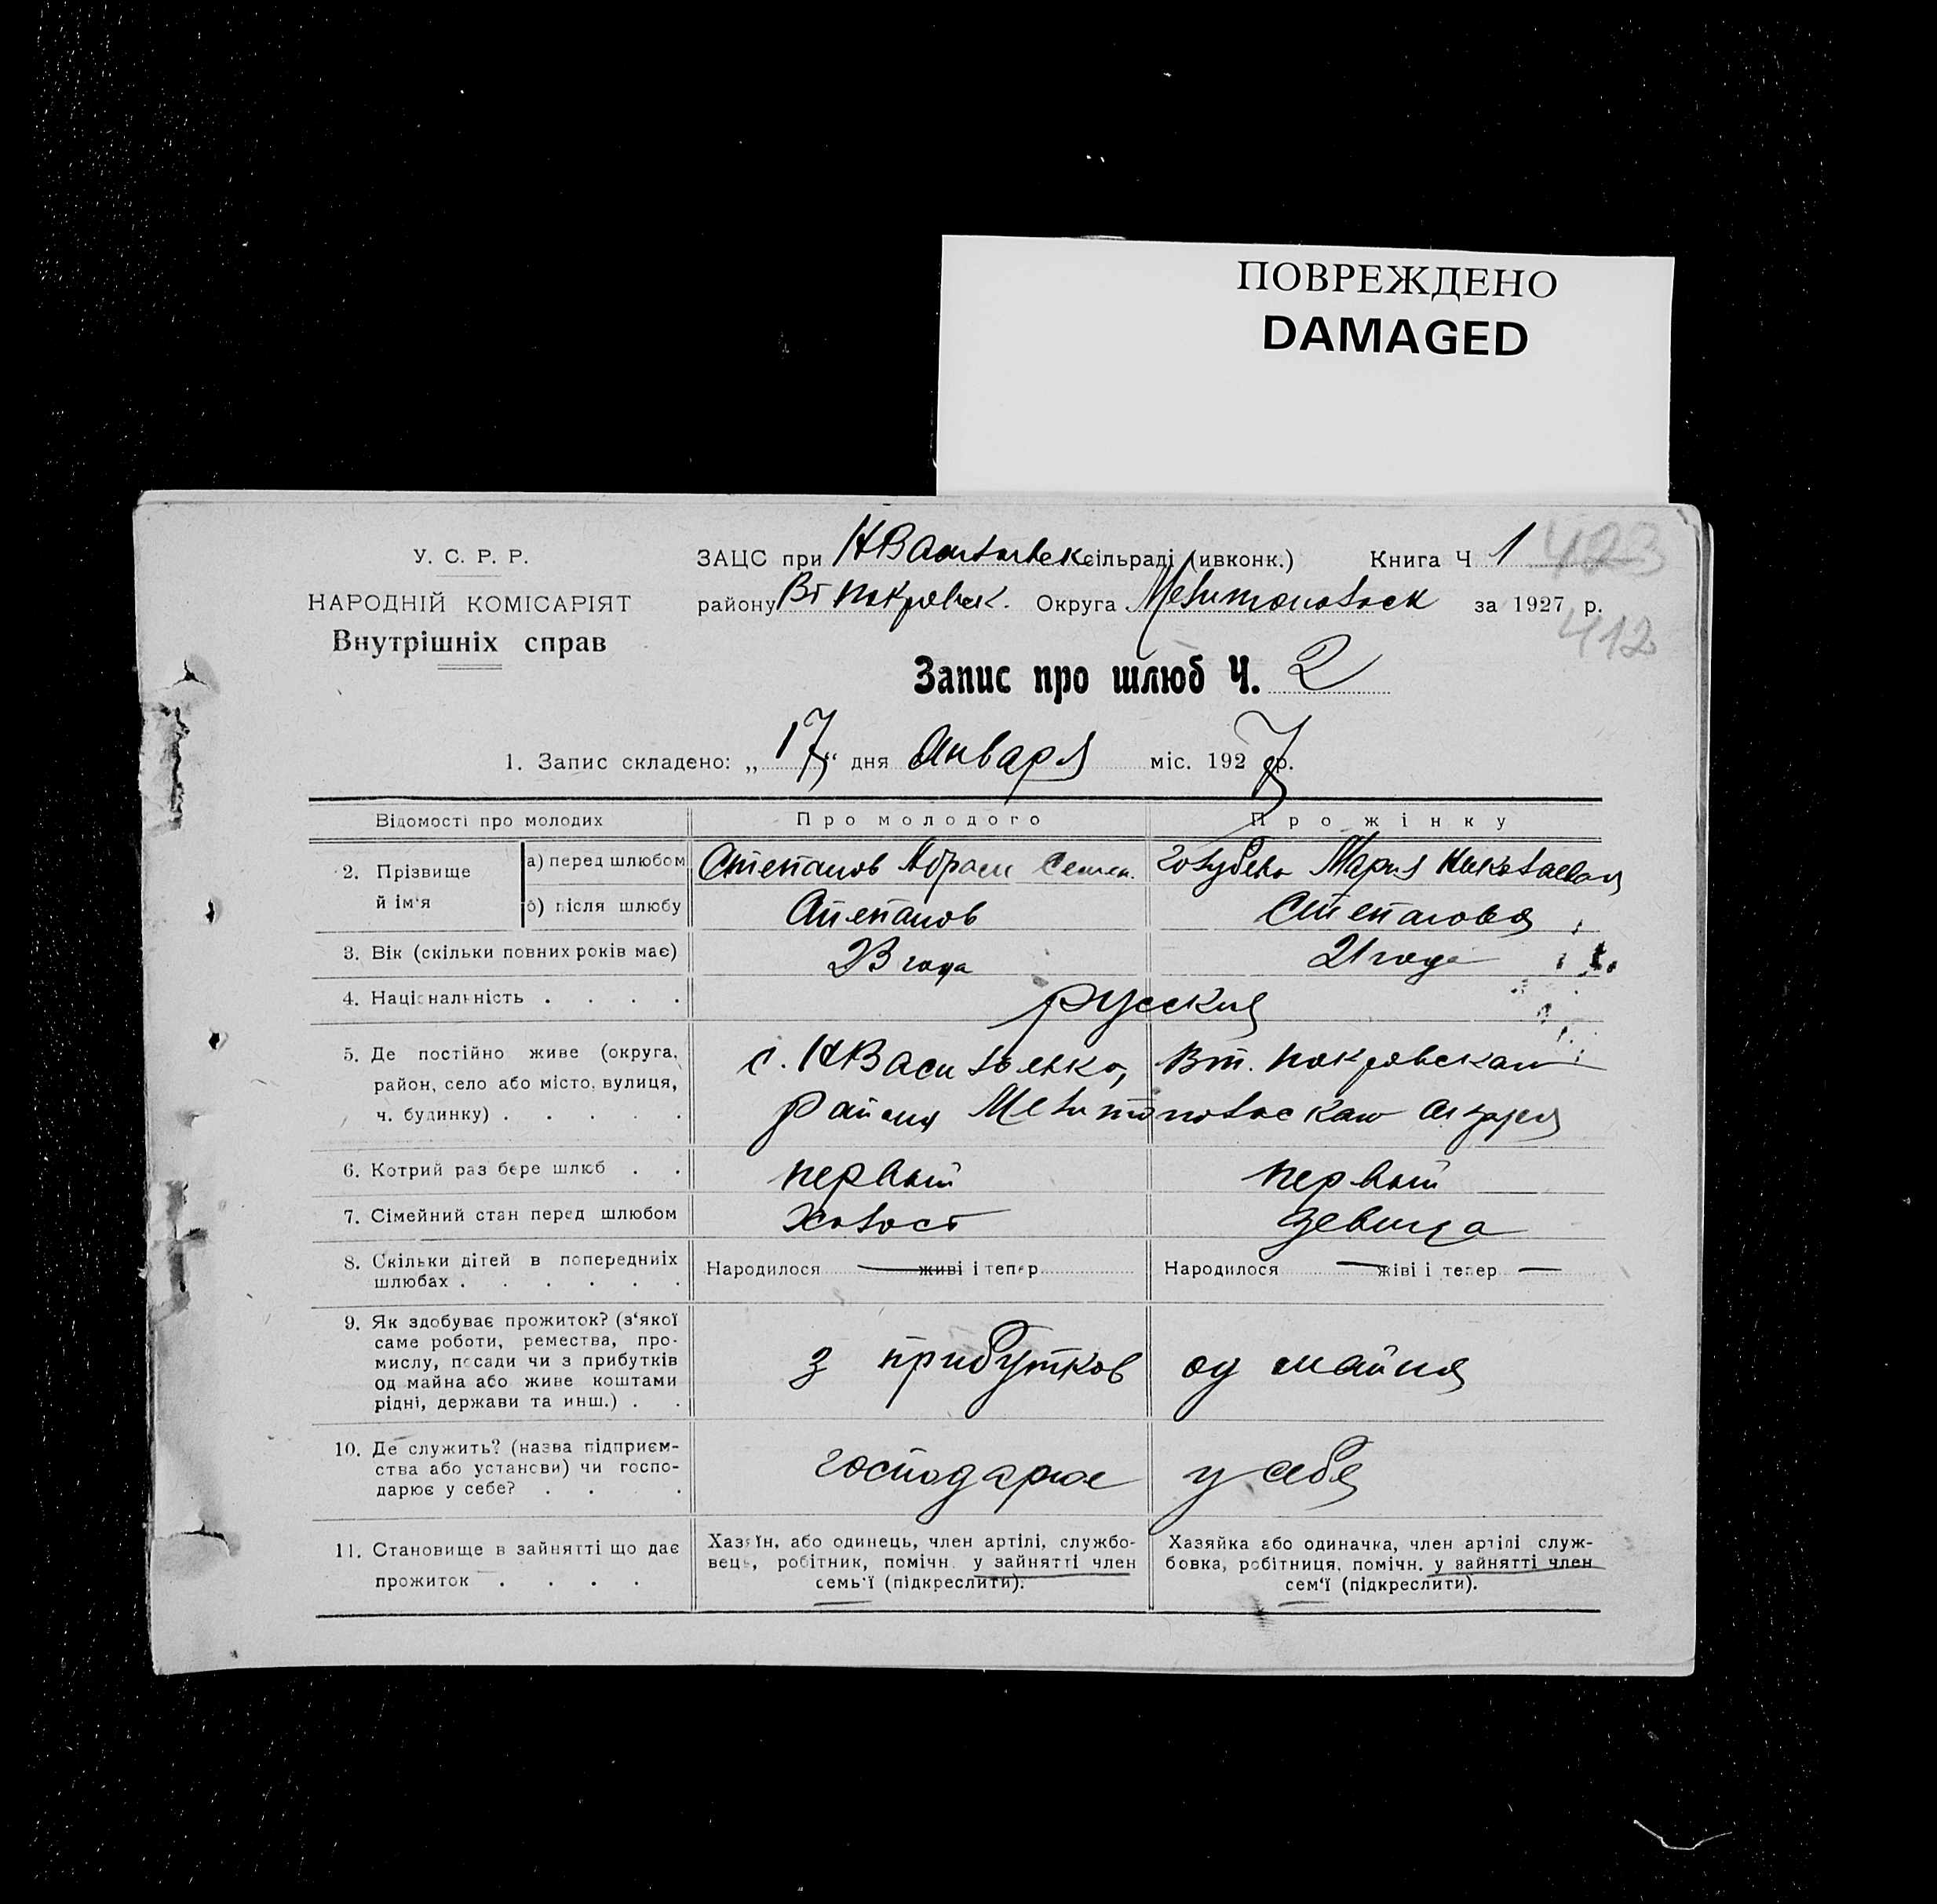 ПОВРЕЖДЕНО
DAMAGED
У. С. Р. Р.
НАРОДНІЙ КОМІСАРІЯТ
Внутрішніх справ
ЗАЦС при НВасильевск сільраді (ивконк.) Книга Ч 1 423
району Вт Покровск. Округа Мелитопольск за 1927 р.
412
Запис про шлюб Ч. 2
1. Запис складено: „17“ дня Января міс. 1927 р.
Відомості про молодих Про молодого Про жінку
2. Прізвище й ім'я
а) перед шлюбом Степанов Абрам Семен. Голубева Мария Николаевна
б) після шлюбу Степанов Степанова
3. Вік (скільки повних років має) 23 года 21 года
4. Національність . . . . русския
5. Де постійно живе (округа, с. НВасильевка, Вт. Покровскаго
район, село або місто, вулиця, района Мелитопольскаго округа
ч. будинку) . . . . .
6. Котрий раз бере шлюб . . первый первый
7. Сімейний стан перед шлюбом Холост девица
8. Скільки дітей в попередниіх Народилося — живі і тепер Народилося — живі і тепер —
шлюбах . . . . . .
9. Як здобуває прожиток? (з'якої
саме роботи, ремества, про-
мислу, посади чи з прибутків з прибутков од майна
од майна або живе коштами
рідні, держави та инш.) . .
10. Де служить? (назва підприєм-
ства або установи) чи госпо- господарює у себя
дарює у себе? . . .
11. Становище в зайнятті що дає
прожиток . . . .
Хазяїн, або одинець, член артілі, службо-
вець, робітник, помічн. у зайнятті член
семь'ї (підкреслити).
Хазяйка або одиначка, член артілі служ-
бовка, робітниця, помічн. у зайнятті член
сем'ї (підкреслити).